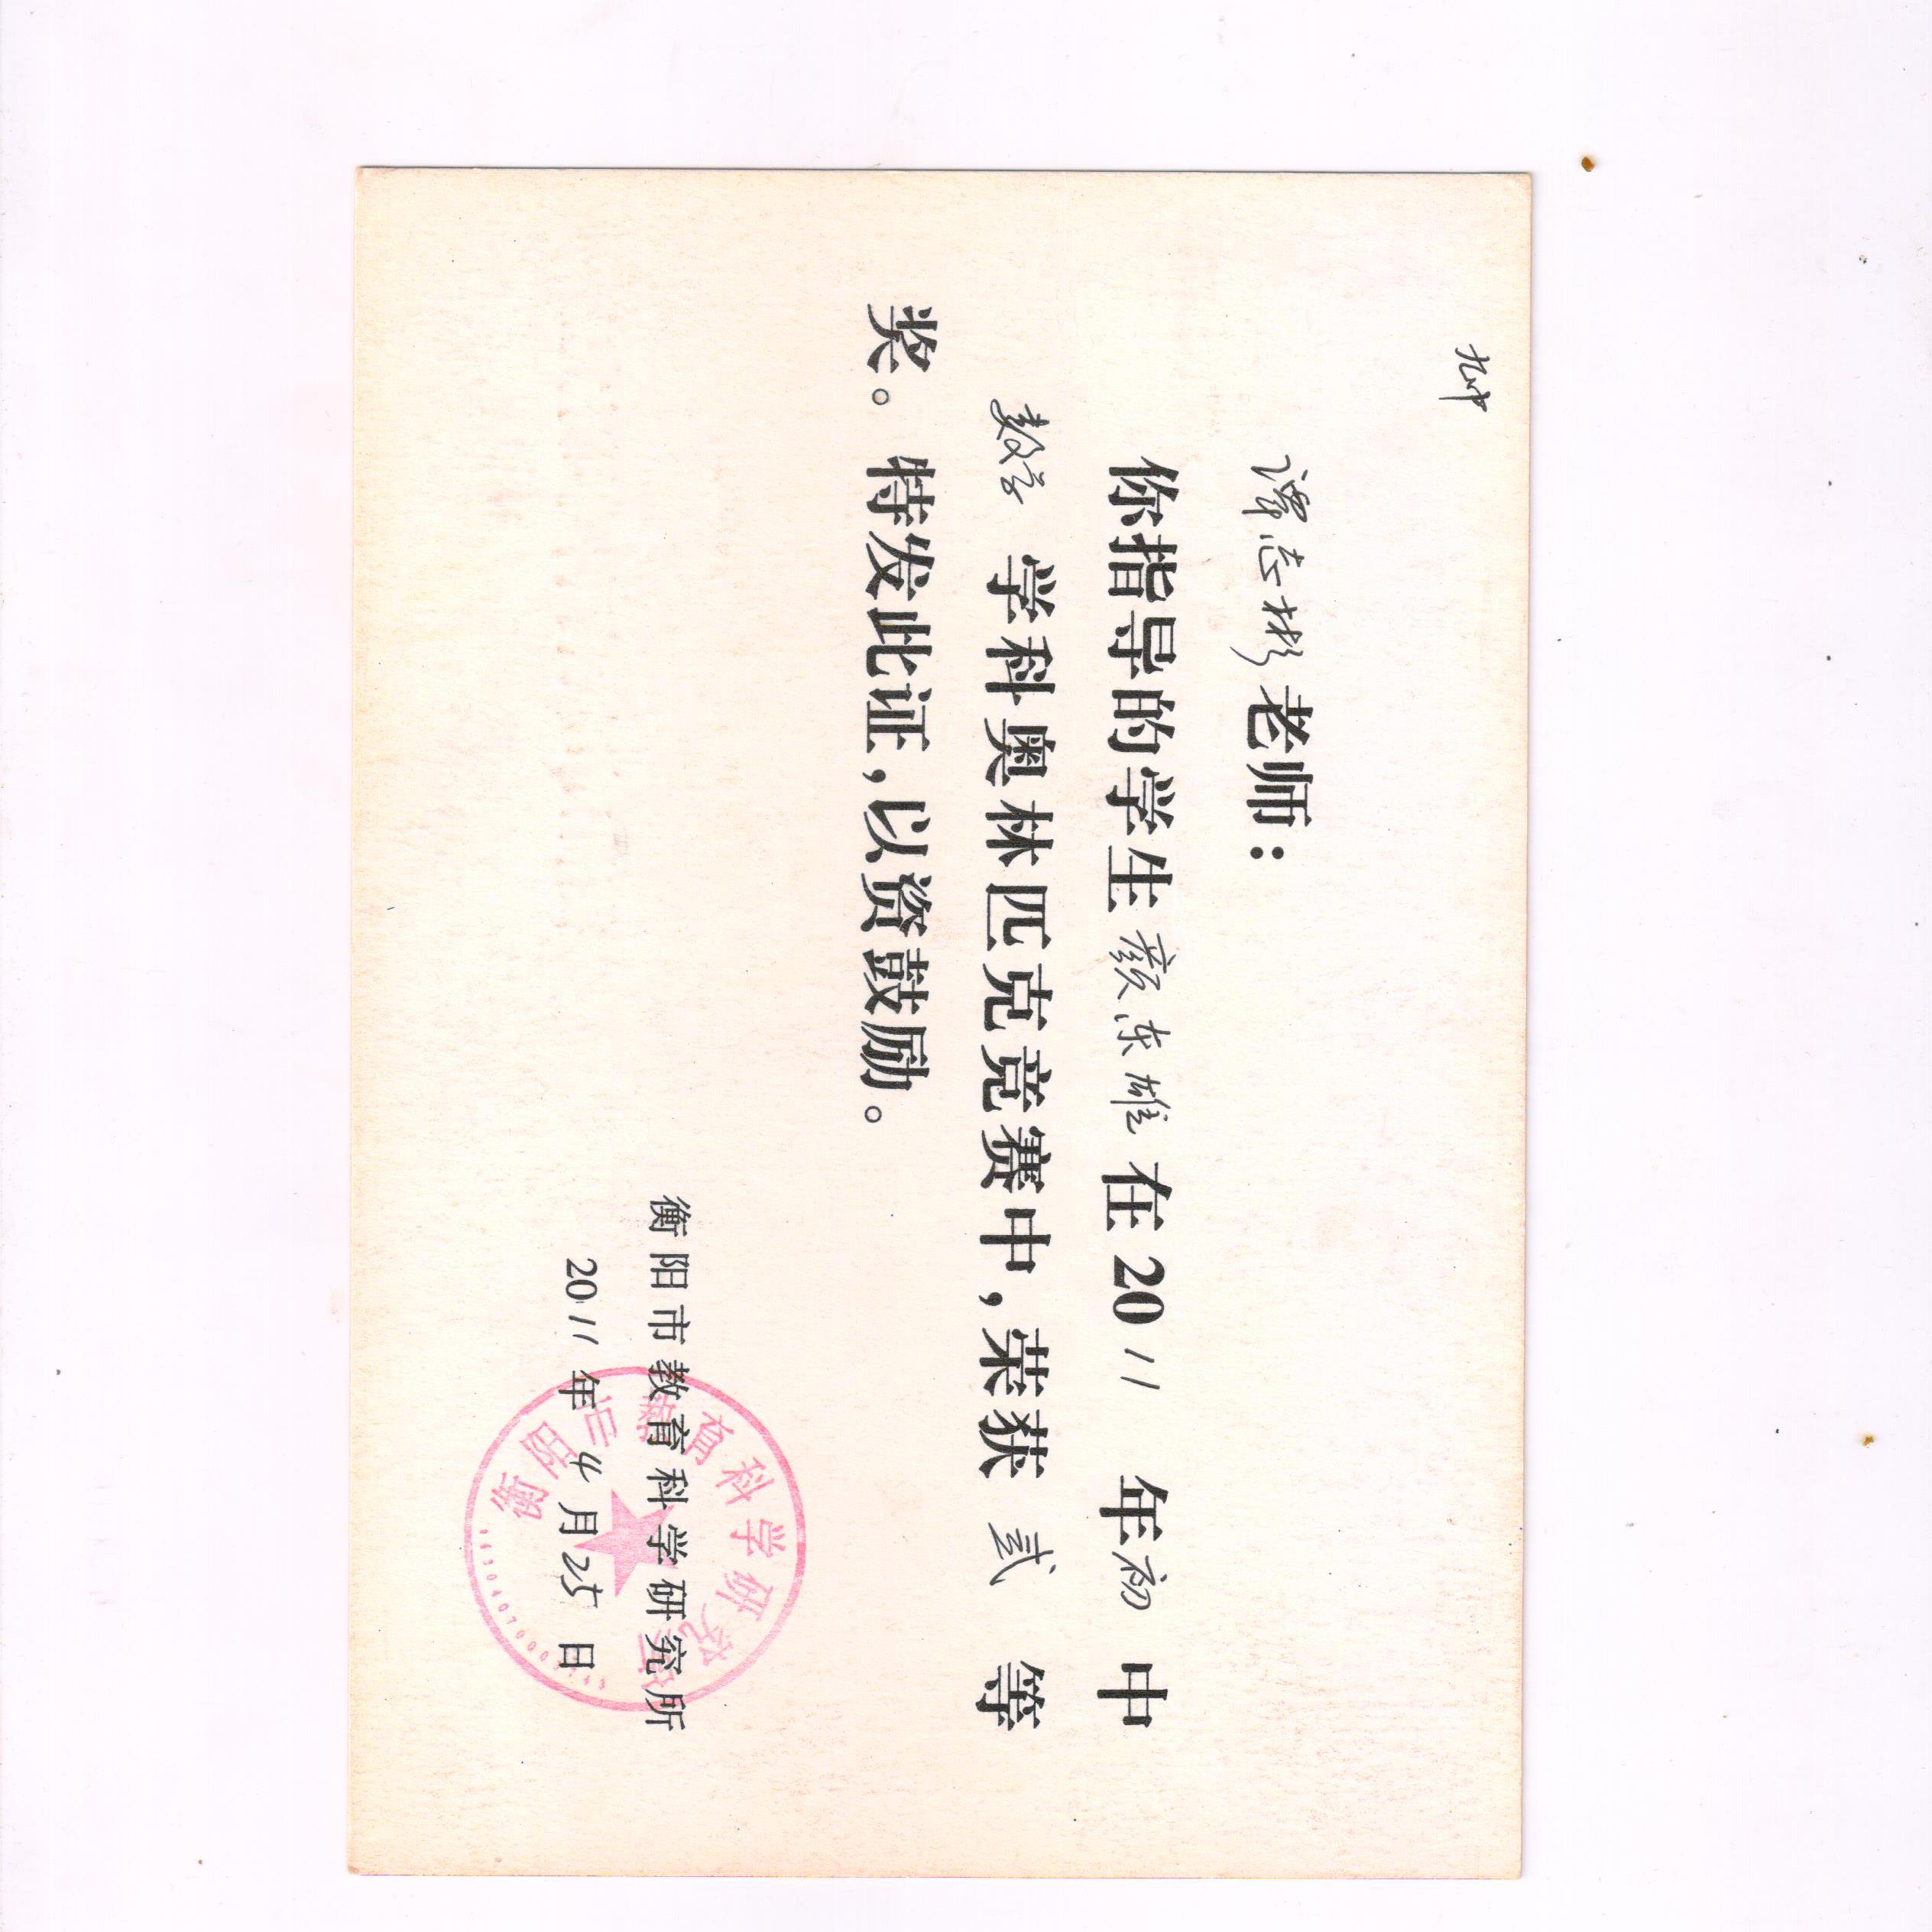 九中
谭志彬老师：
你指导的学生颜东雄在2011年初中
数学学科奥林匹克竞赛中，荣获贰等
奖。特发此证，以资鼓励。
衡阳市教育科学研究所
2011年4月25日
衡阳市教育科学研究所